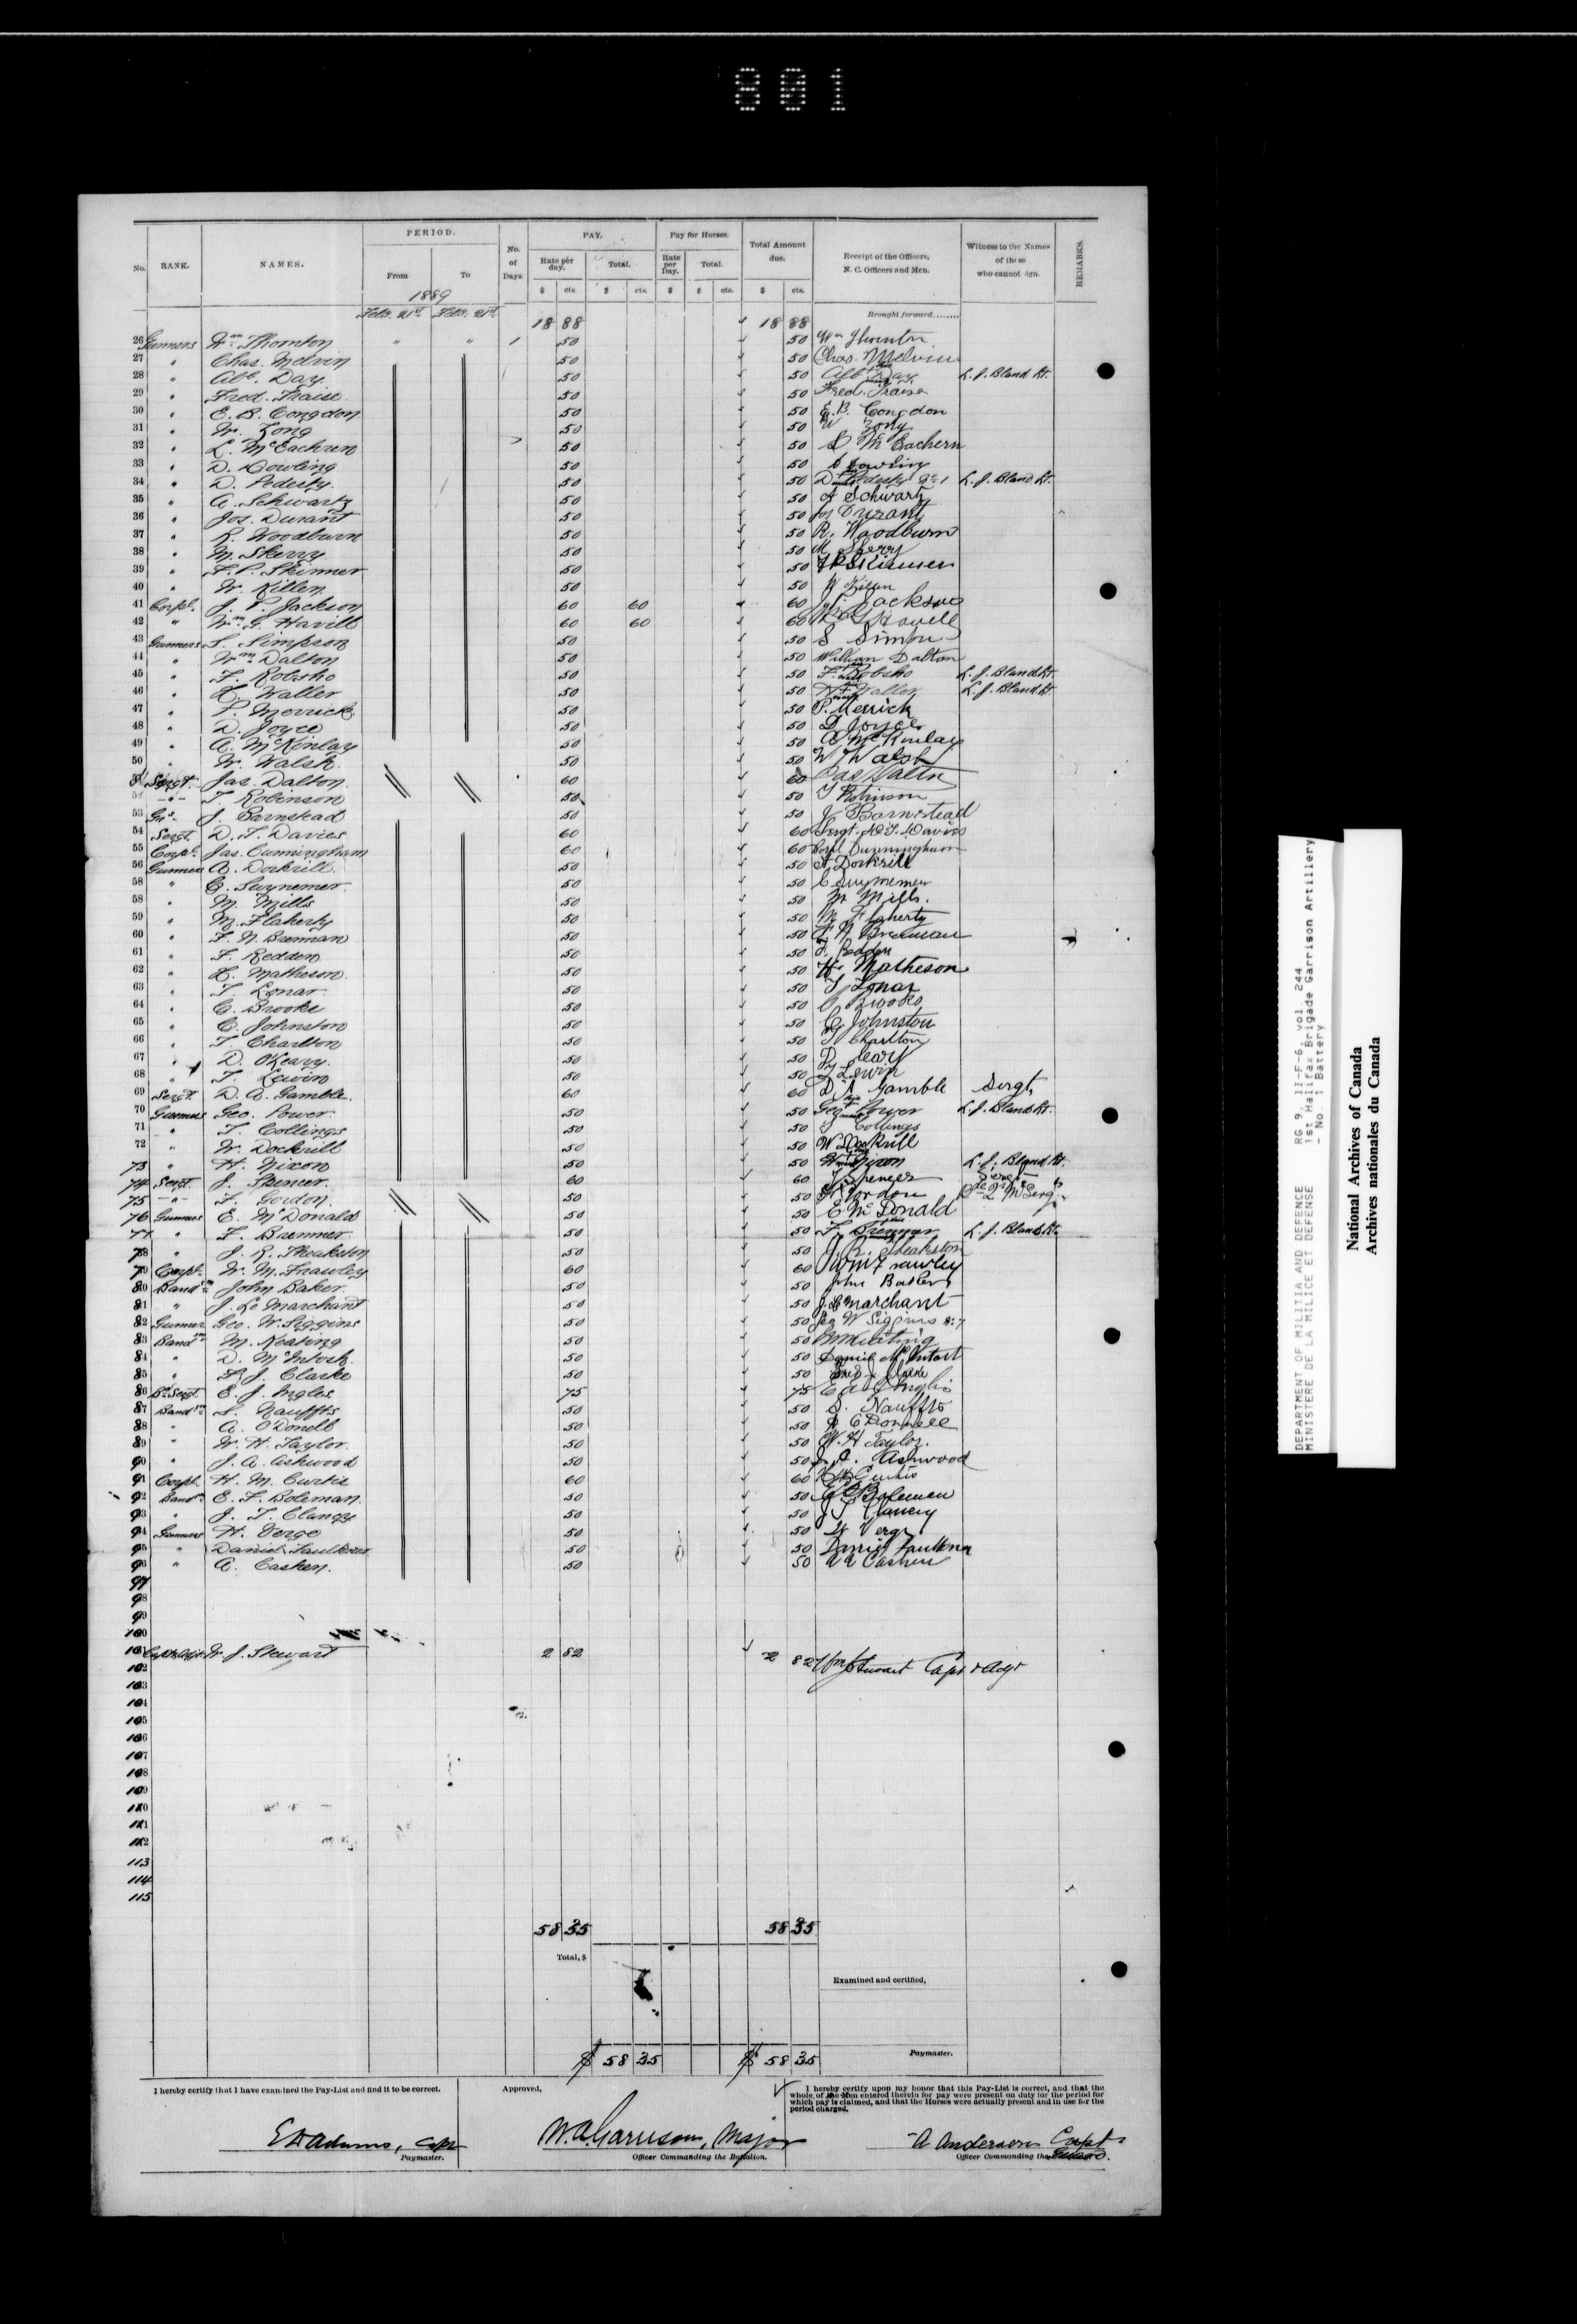 801
PERIOD.
PAY.
Pay for Horses.
Total Amount due.
No.
RANK.
NAMES.
From
To
No. of Days
Rate per day.
Total.
Rate per Day.
Total.
Receipt of the Officers, N. C. Officers and Men.
Witness to the Names of those who cannot sign.
REMARKS.
$ cts. $ cts. $ $ cts. $ cts.
1889
Feb. 21st Feb. 21st
18 88 18 88 Brought forward........
26 Gunners Wm Thornton " " 1 50 50 Wm Thornton
27 " Chas. Melvin 50 50 Chas. Melvin
28 " Alb. Day 50 50 Alb Day L. J. Bland Lt.
29 " Fred. Fraise 50 50 Fred. Fraise
30 " E. B. Congdon 50 50 E. B. Congdon
31 " W. Zong 50 50 W Zong
32 " L. McEachren 50 50 L McEachern
33 " D. Dowling 50 50 D Dowling
34 " D. Pedesty 50 50 D Pedesty L. J. Bland Lt.
35 " A. Schwartz 50 50 A Schwartz
36 " Jos. Durant 50 50 Jos Durant
37 " R. Woodburn 50 50 R. Woodburn
38 " M. Skerry 50 50 M Skerry
39 " F. P. Skinner 50 50 F P Skinner
40 " W. Killen 50 50 W Killen
41 Corpl. J. P. Jackson 60 60 60 J P Jackson
42 " Wm G. Havill 60 60 60 Havill
43 Gunners S. Simpson 50 50 S Simpson
44 " Wm Dalton 50 50 William Dalton
45 " F. Robsho 50 50 F. Robsho L. J. Bland Lt.
46 " H. Waller 50 50 H Waller L. J. Bland Lt
47 " P. Merrick 50 50 P. Merrick
48 " D. Joyce 50 50 D Joyce
49 " A. McKinlay 50 50 A McKinlay
50 " W. Walsh 50 50 W Walsh
51 Sergt. Jas. Dalton 60 60 Jas Dalton
52 -"- T. Robinson 50 50 T Robinson
53 Gr. J. Barnstead 50 50 J Barnstead
54 Sergt. D. T. Davies 60 60 Sergt. D. T. Davies
55 Corpl. Jas. Cunningham 60 60 Corpl Cunningham
56 Gunners A. Dorkrill 50 50 A Dorkrill
58 " G. Guynemer 50 50 Guynemer
58 " M. Mills 50 50 M Mills.
59 " M. Flaherty 50 50 M Flaherty
60 " F. N. Brennan 50 50 F N Brennan
61 " F. Redden 50 50 F. Redden
62 " H. Matheson 50 50 H. Matheson
63 " T. Lonar 50 50 T Lonar
64 " C. Brooke 50 50 C Brooks
65 " C. Johnston 50 50 C. Johnston
66 " T. Charlton 50 50 T Charlton
67 " D. O'Leary 50 50 D Leary
68 " T. Lewin 50 50 T Lewin
69 Sergt. D. A. Gamble 60 60 D A Gamble Sergt.
70 Gunners Geo. Power 50 50 Geo Power L. J. Bland Lt.
71 " T. Collings 50 50 T Collings
72 " W. Dockrill 50 50 W Dockrill
73 " H. Nixon 50 50 Nixon L. J. Bland Lt.
74 Sergt. J. Spencer 60 60 J Spencer
75 -"- F. Gordon 50 50 F Gordon
76 Gunner E. McDonald 50 50 E McDonald
77 " F. Bremner 50 50 F. Bremner L. J. Bland Lt.
78 " J. R. Theakston 50 50 J. R. Theakston
79 Corpl. W. M. Frawley 60 60 W M Frawley
80 Bandsm John Baker 50 50 John Baker
81 " J. Le Marchant 50 50 J. Le Marchant
82 Gunner Geo. W. Siggins 50 50 Geo W Siggins
83 Bandsm M. Keating 50 50 M Keating
84 " D. McIntosh 50 50 Daniel McIntosh
85 " F. J. Clarke 50 50 Fred J Clarke
86 Bd Sergt. E. J. Ingles 75 75
87 Bandsm S. Nauffts 50 50 S. Nauffts
88 " A. O'Donell 50 50 A O'Donnell
89 " W. H. Taylor 50 50 W. H Taylor.
90 " J. A. Ashwood 50 50 J. A. Ashwood
91 Corpl. H. M. Curtis 60 60 H M Curtis
92 Bandsm E. F. Boleman 50 50 Boleman
93 " J. T. Clancy 50 50 J T Clancy
94 Gunners H. Verge 50 50 H Verge
95 " Daniel Faulkner 50 50 Daniel Faulkner
96 " A. Cashen. 50 50 A Cashen
97
98
99
100
101 Capt & Adjt W. J. Stewart 2 82 2 82 Wm J Stewart Capt & Adjt
102
103
104
105
106
107
108
109
110
111
112
113
114
115
58 35 58 35
Total, $
Examined and certified,
$ 58 35 $ 58 35
Paymaster.
I hereby certify that I have examined the Pay-List and find it to be correct.
E D Adams, Capt
Paymaster.
Approved,
W. A. Garrison, Major
Officer Commanding the Battalion.
I hereby certify upon my honor that this Pay-List is correct, and that the
whole of the Men entered therein for pay were present on duty for the period for
which pay is claimed, and that the Horses were actually present and in use for the
period charged.
A Anderson Capt
Officer Commanding the
DEPARTMENT OF MILITIA AND DEFENCE RG 9, II-F-6, vol. 244
MINISTERE DE LA MILICE ET DEFENSE 1st Halifax Brigade Garrison Artillery
- No. 1 Battery
National Archives of Canada
Archives nationales du Canada